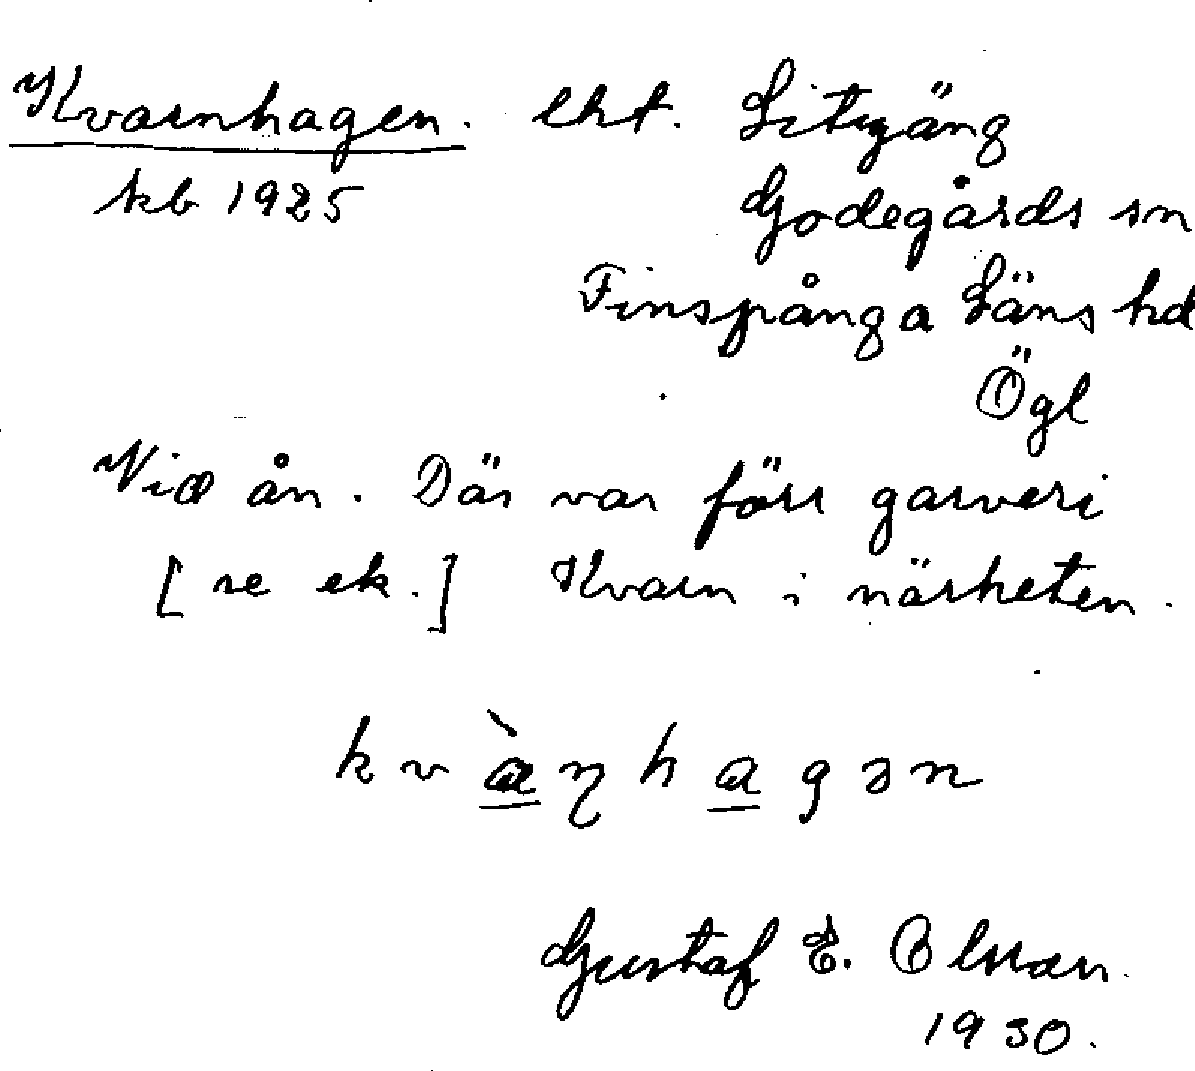 Kvarnhagen. lht. Sitgäng
kb 1925 Godegårds sn
Finspånga Läns hd
Ögl
Vid ån. Där var förr garveri
[se ek.] Kvarn i närheten.
kvàɳhagən
Gustaf E. Olsson.
1930.